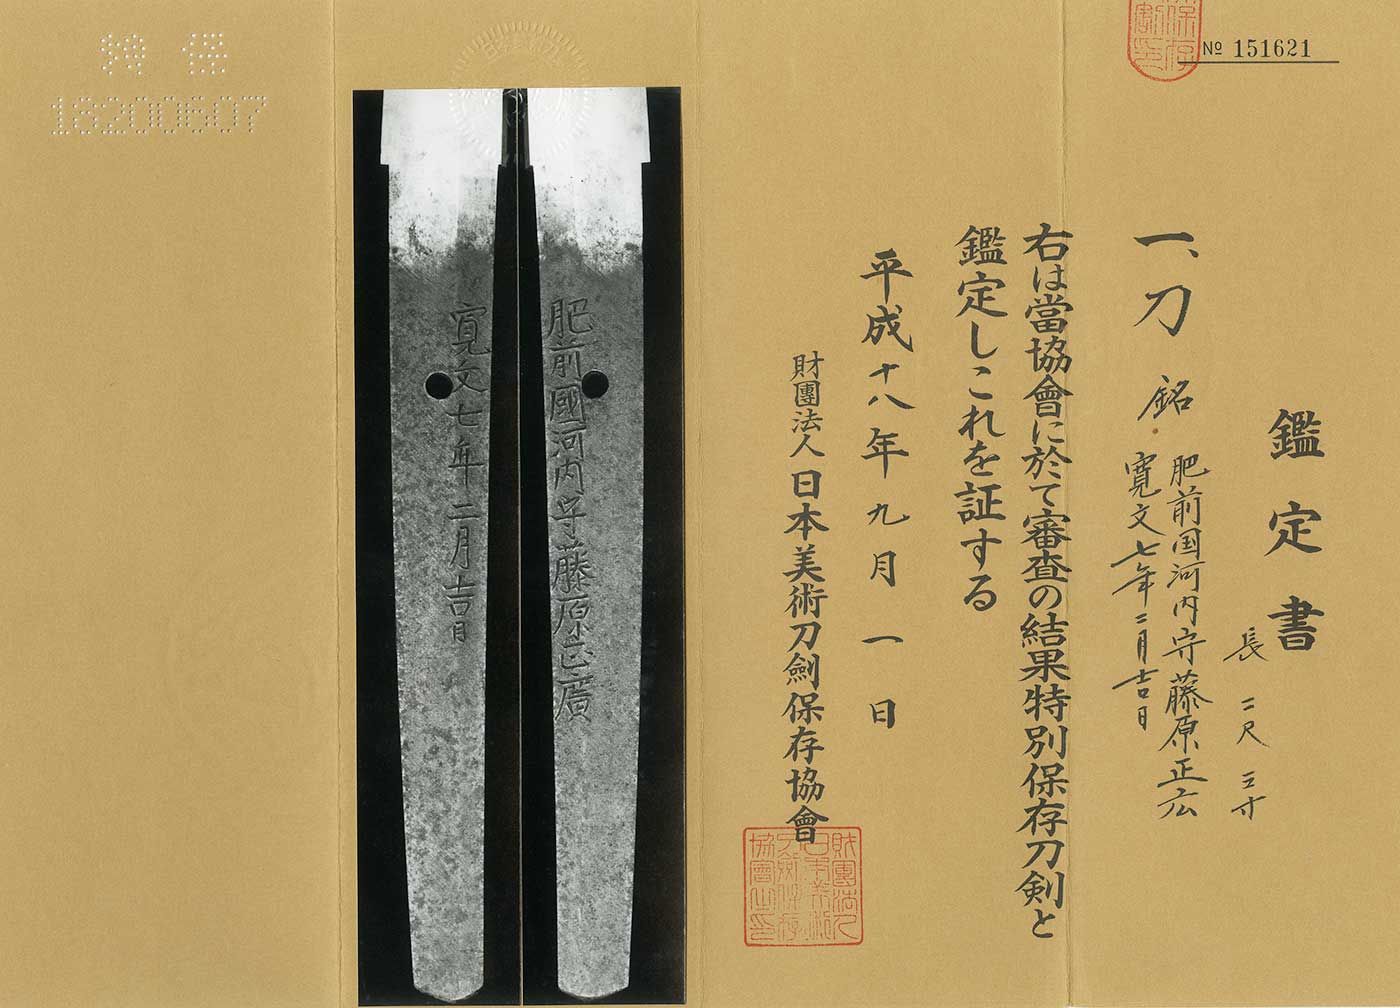 № 151621
鑑定書
一、刀 銘 肥前国河内守藤原正広
寛文七年二月吉日
長 二尺 三寸
右は當協會に於て審査の結果特別保存刀剣と
鑑定しこれを証する
平成十八年九月一日
財團法人 日本美術刀劍保存協會
肥前國河内守藤原正廣
寛文七年二月吉日
特 保
18200607